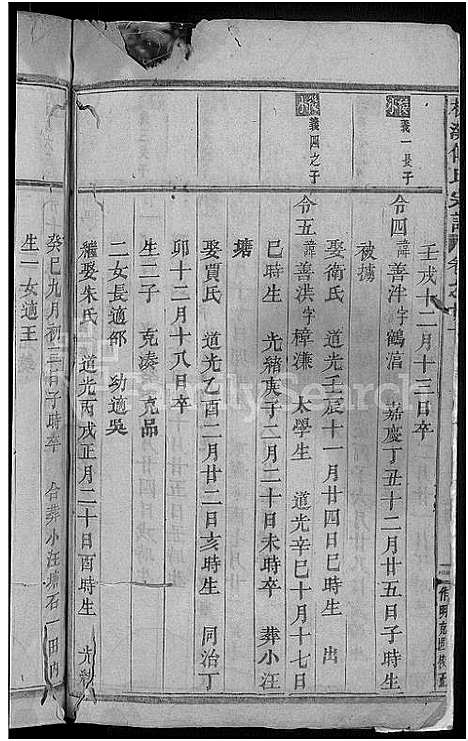 壬戌十二月十三日卒
義一長子
令四 諱善泮字鶴湻 嘉慶丁丑十二月廿五日子時生
被擄
娶衛氏 道光壬辰十一月廿四日巳時生 出
義四之子
令五 諱善洪字樟濂 太學生 道光辛巳十月十七日
巳時生 光緒庚子二月二十日未時卒 葬小汪
塘
娶賈氏 道光乙酉二月廿二日亥時生 同治丁
卯十二月十八日卒
生二子 克湊 克品
二女長適邵 幼適吳
繼娶朱氏 道光丙戌正月二十日酉時生 光緒
癸巳九月初三日子時卒 合葬小汪塘石一田內
生一女適王
FamilySearch